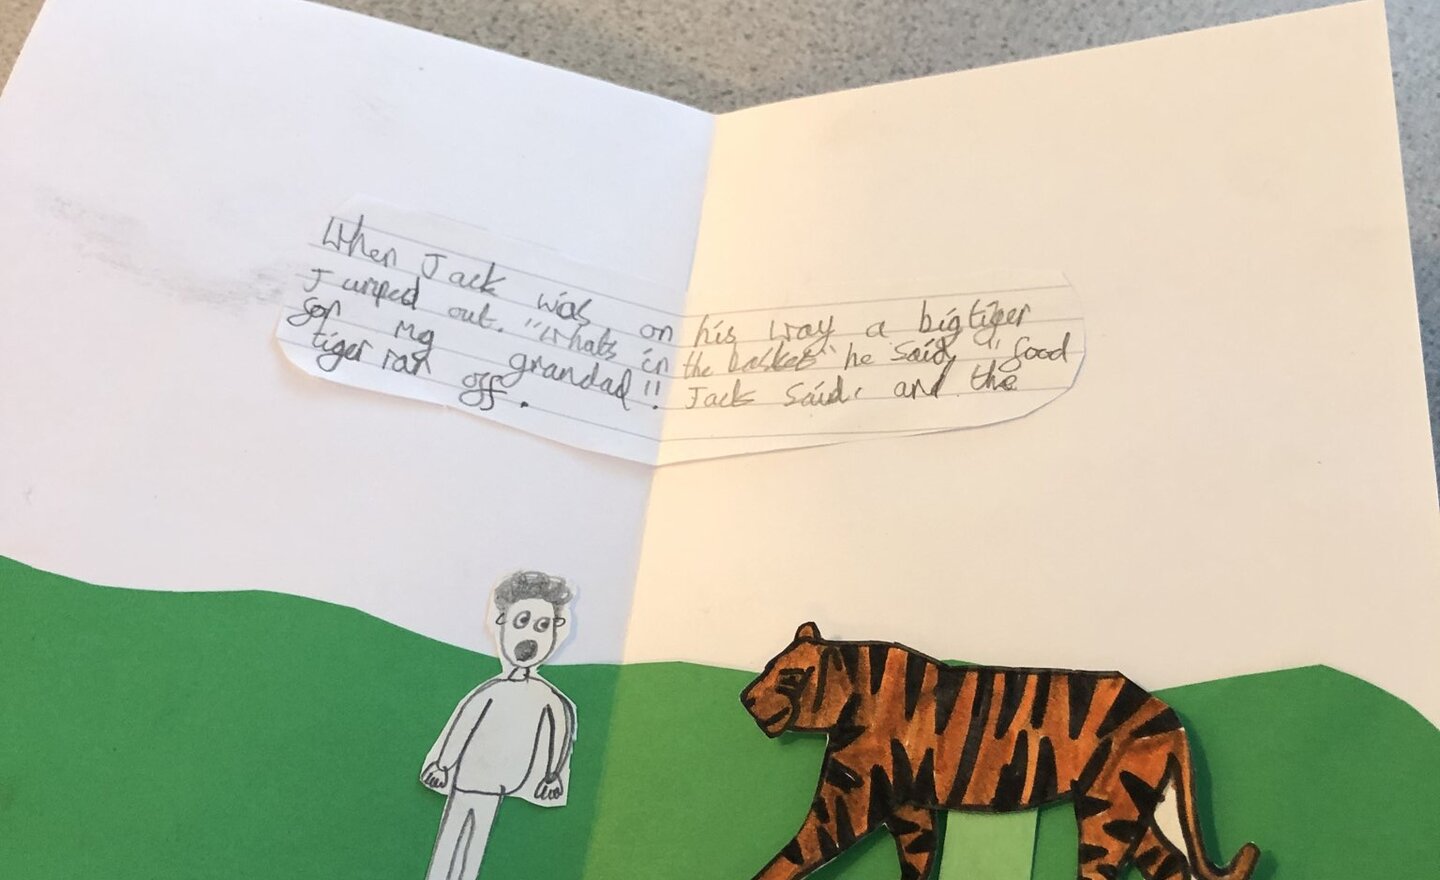 When Jack was on his way a big tiger
Jumped out. "Whats in the basket" he said, "food
for my grandad!! Jack said. and the
tiger ran off.